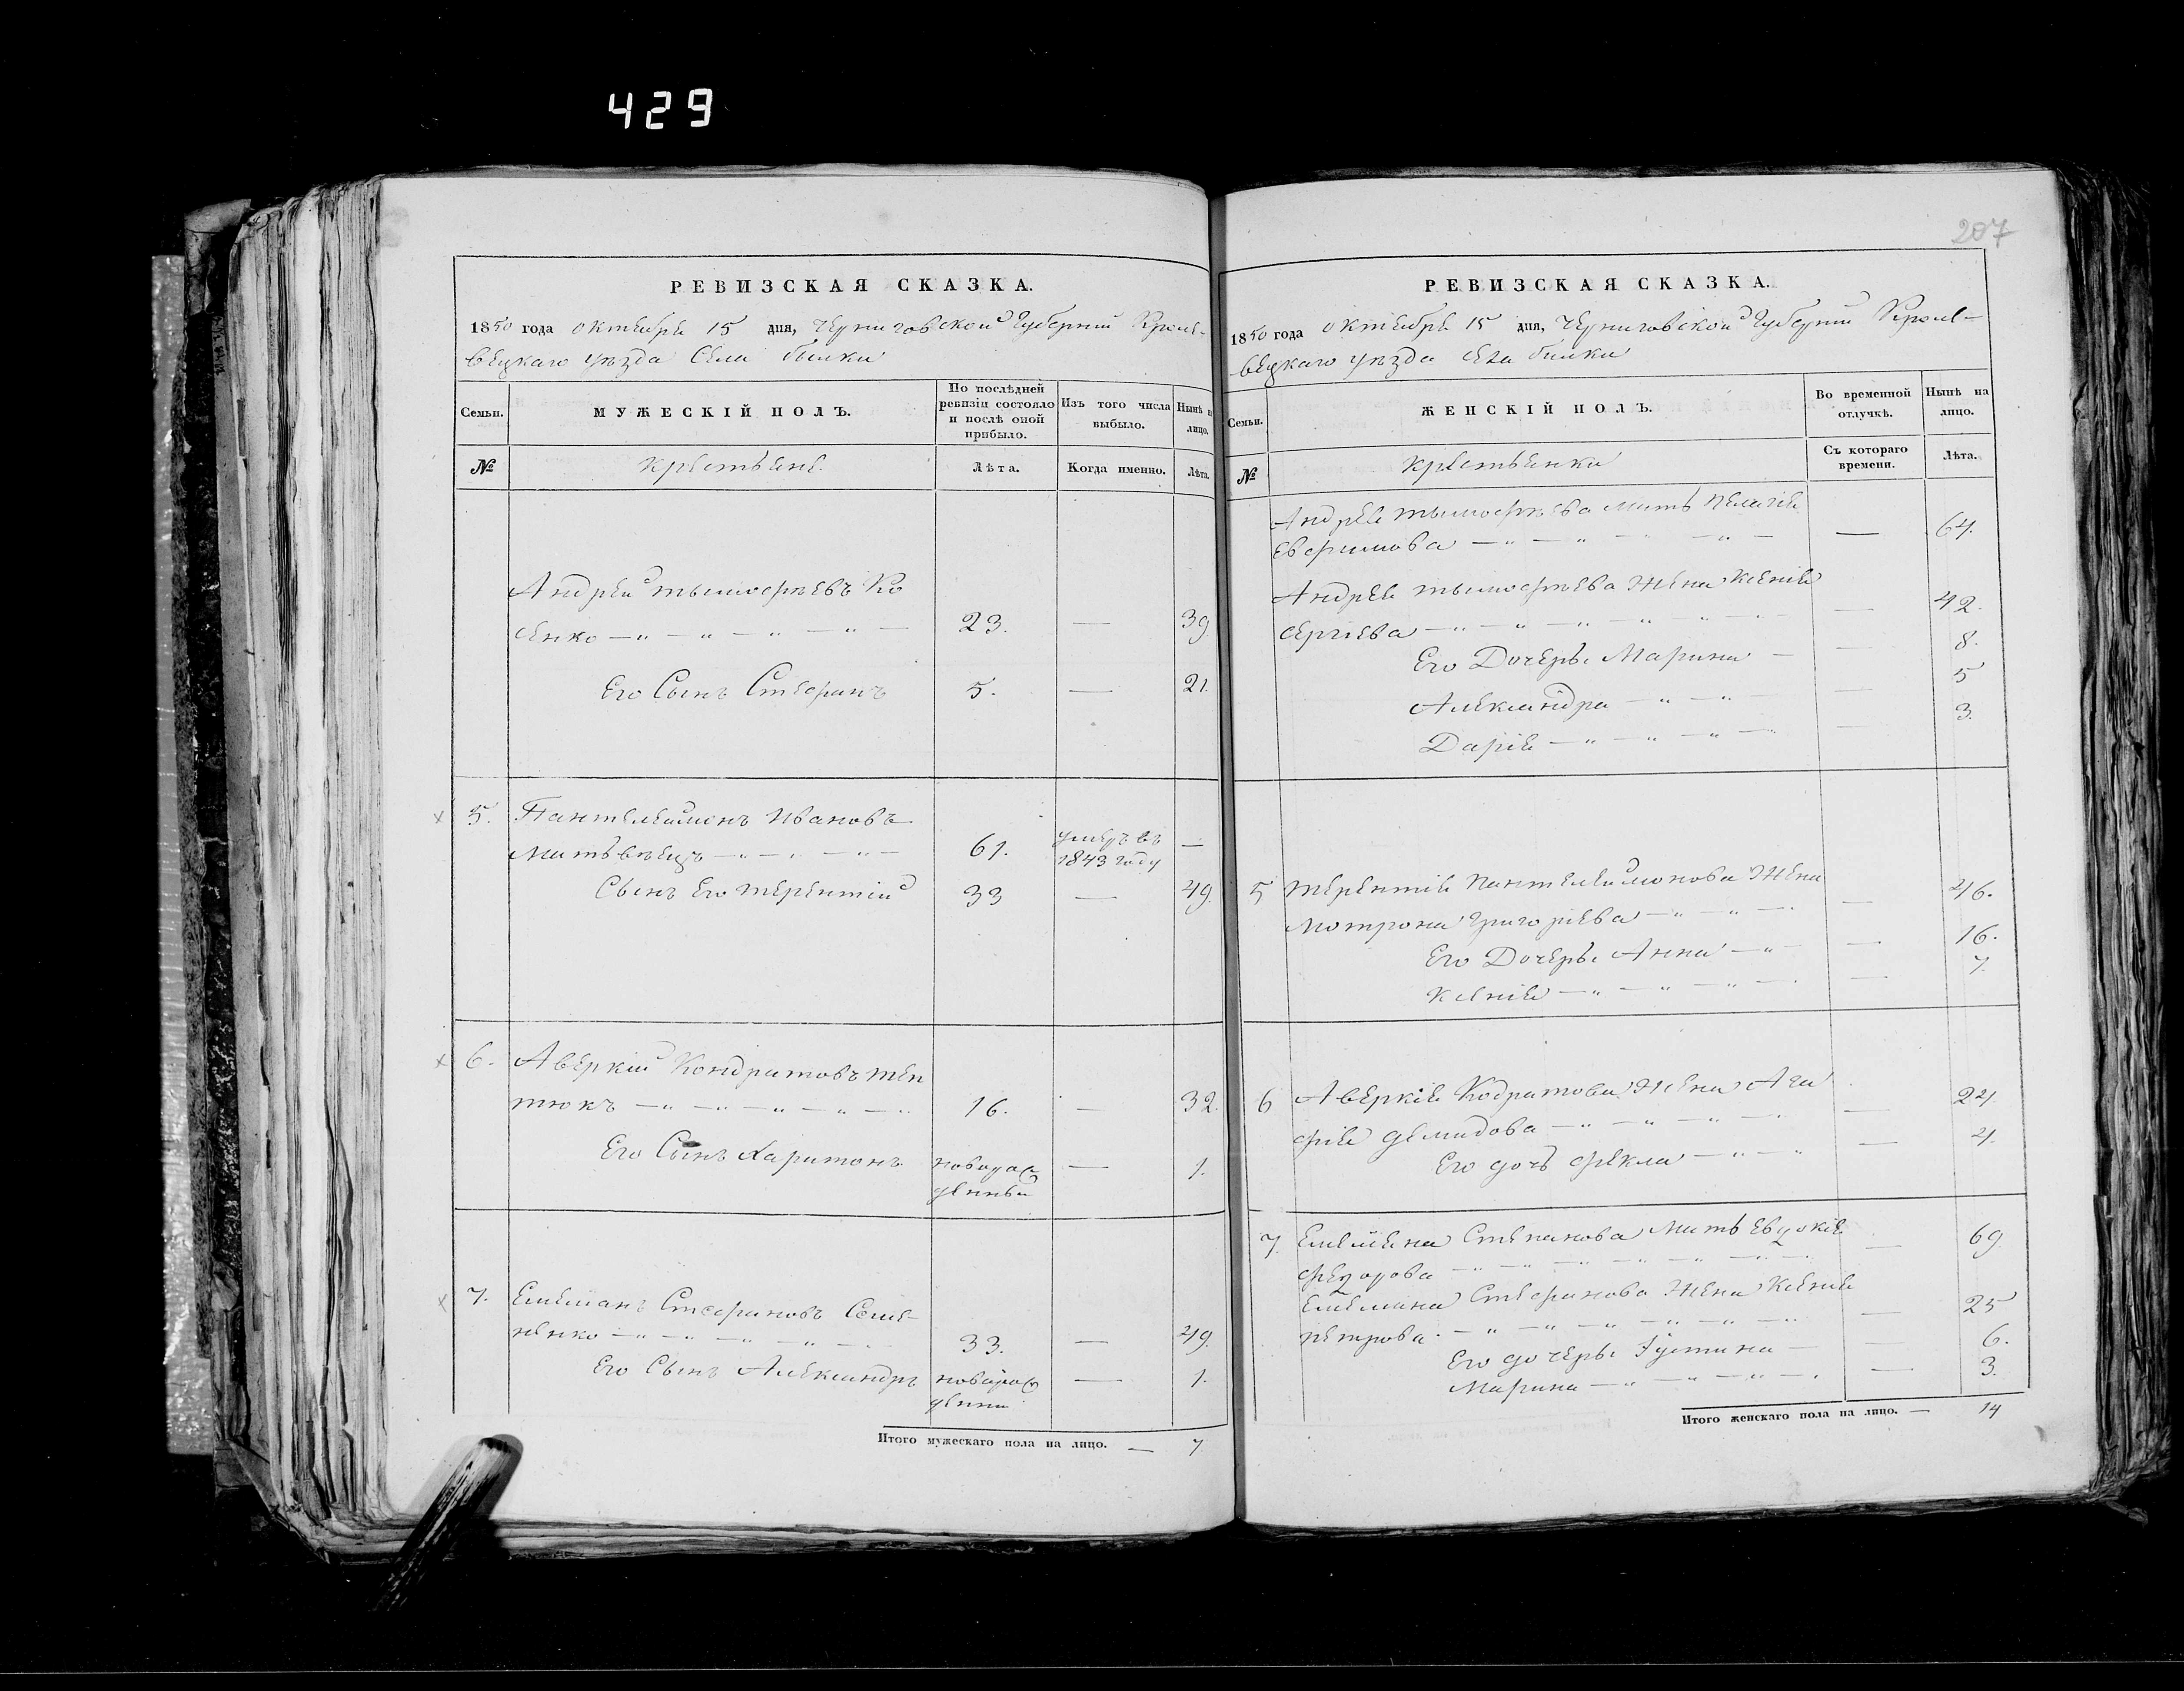 429
207
РЕВИЗСКАЯ СКАЗКА.
1850 года октября 15 дня, Черниговской Губернии Кроле-
вецкаго уезда Села билки
Семьи.
МУЖЕСКІЙ ПОЛЪ.
По послѣдней
ревизіи состояло
и послѣ оной
прибыло.
Изъ того числа
выбыло.
Нынѣ на
лицо.
№
Крестьяне.
Лѣта.
Когда именно.
Лѣта.
Андрей тымофѣевъ Ко
сенко — " — " — " — " — 23. — 39.
Его Сынъ Стефанъ 5. — 21.
5. Пантелеймонъ Ивановъ
Матвѣецъ — " — " — " — 61. умеръ въ —
1843 году
Сынъ Его терентій 33 — 49.
6. Аверкій Кондратовъ теп
тюкъ — " — " — " — " — " 16. — 32.
Его Сынъ Харитонъ новорож — 1.
денный
7. Емельянъ Стефановъ Семе-
ненко — " — " — " — " — 33. — 49.
Его Сынъ Александръ новорож — 1.
денни
Итого мужескаго пола на лицо. — 7
РЕВИЗСКАЯ СКАЗКА.
1850 года октября 15 дня, Черниговской Губернии Кроле-
вецкаго уезда села билки
Семьи.
ЖЕНСКІЙ ПОЛЪ.
Во временной
отлучкѣ.
Нынѣ на
лицо.
№
Крестьянки
Съ котораго
времени.
Лѣта.
Андрея тымофѣева мать Пелагія
Евфимова — " — " — " — — 64.
Андрея тымофѣева Жена Ксенія
Сергіева — " — " — " — " — — 42.
Его Дочеры Марина — — 8.
Александра — " — " — — 5
Дарія — " — " — " — — 3.
5 терентія Пантелеймонова Жена
мотрона григоріева — " — " — — 46.
Его Дочеры Анна — " — — 16.
Ксенія — " — " — " — — 7.
6 Аверкія Кодратова Жена Ага
фія демидова — " — " — " — — 24.
Его дочь фекла — " — " — 4.
7. Емельяна Степанова Мать Евдокія
федорова — " — " — " — " — — 69.
Емельяна Стефанова Жена Ксенія
петрова. — " — " — " — " — — 25
Его дочеры Іустина — — 6.
Марина — " — " — " — — 3.
Итого женскаго пола на лицо. — 14